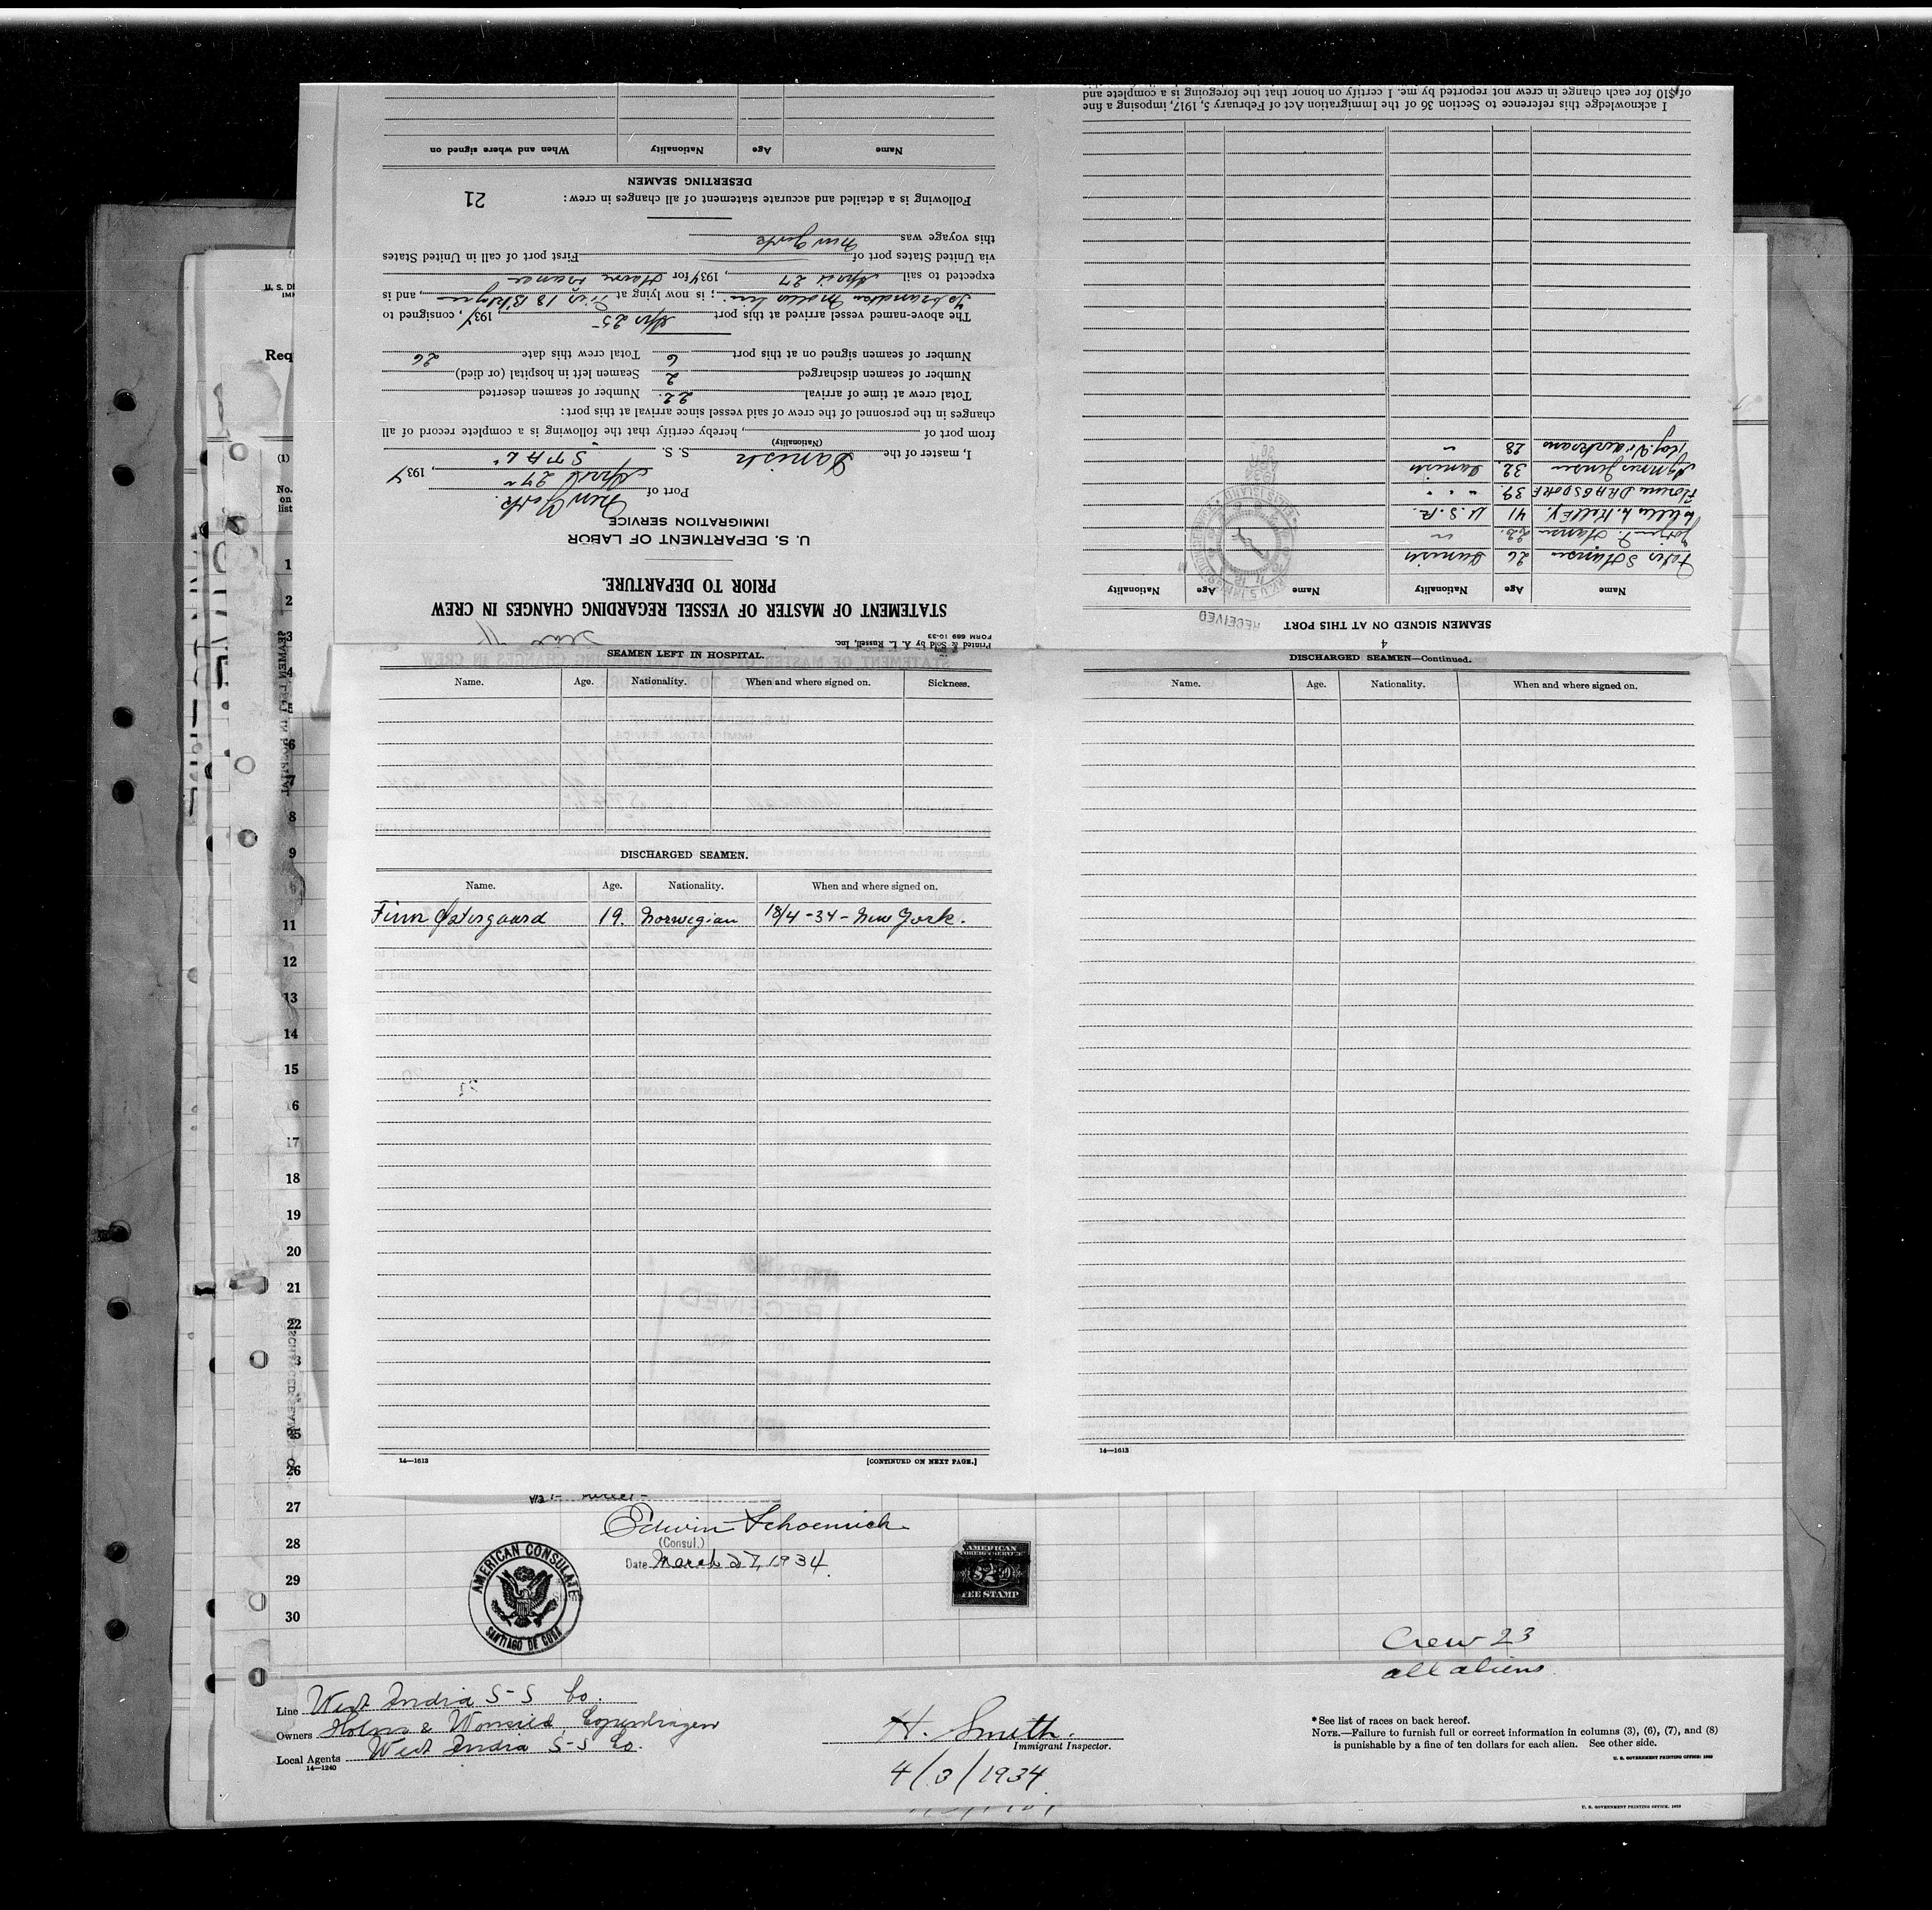 I acknowledge this reference to Section 36 of the Immigration Act of February 5, 1917, imposing a fine
of $10 for each change in crew not reported by me. I certify on honor that the foregoing is a complete and
Printed & Sold by A. L. Russell, Inc.
FORM 689 10-33
STATEMENT OF MASTER OF VESSEL REGARDING CHANGES IN CREW
PRIOR TO DEPARTURE.
U. S. DEPARTMENT OF LABOR
IMMIGRATION SERVICE
Port of New York.
April 27, 1934
I, master of the Danish S. S. "STAL"
(Nationality)
from port of , hereby certify that the following is a complete record of all
changes in the personnel of the crew of said vessel since arrival at this port:
Total crew at time of arrival 22. Number of seamen deserted
Number of seamen discharged 2 Seamen left in hospital (or died)
Number of seamen signed on at this port 6 Total crew this date 26
The above-named vessel arrived at this port Apr 25 1934, consigned to
; is now lying at Pier 18 Bklyn , and is
expected to sail April 27 , 1934 for Havre France
via United States port of First port of call in United States
this voyage was New York
Following is a detailed and accurate statement of all changes in crew: 21
DESERTING SEAMEN
Name Age Nationality When and where signed on
4
SEAMEN SIGNED ON AT THIS PORT
Name Age Nationality Name Age Nationality
RECEIVED
Peter S Hansen 26 Danish
Hansen 23. "
Kelley. 41 U.S.A.
DRAGSDORF 39. " "
Jensen 32. Danish
28 "
SEAMEN LEFT IN HOSPITAL.
Name. Age. Nationality. When and where signed on. Sickness.
DISCHARGED SEAMEN.
Name. Age. Nationality. When and where signed on.
Finn Østergaard 19. Norwegian 18/4 -34 - New York.
14—1613 [CONTINUED ON NEXT PAGE.]
DISCHARGED SEAMEN—Continued.
Name. Age. Nationality. When and where signed on.
14—1613
Req
(1)
No.
on
list
1
2
3
4
6
7
8
9
11
12
13
14
15
16
17
18
19
20
21
22
26
27
28
29
30
Edwin Schoenrich
(Consul.)
Date March 27, 1934.
AMERICAN CONSULATE
SANTIAGO DE CUBA
AMERICAN
FOREIGN SERVICE
$2
FEE STAMP
Crew 23
all aliens.
Line West India S-S Co.
Owners Holm & Wonsild, Copenhagen
Local Agents West India S-S Co.
14—1240
H. Smith.
Immigrant Inspector.
4/3/1934
* See list of races on back hereof.
NOTE.—Failure to furnish full or correct information in columns (3), (6), (7), and (8)
is punishable by a fine of ten dollars for each alien. See other side.